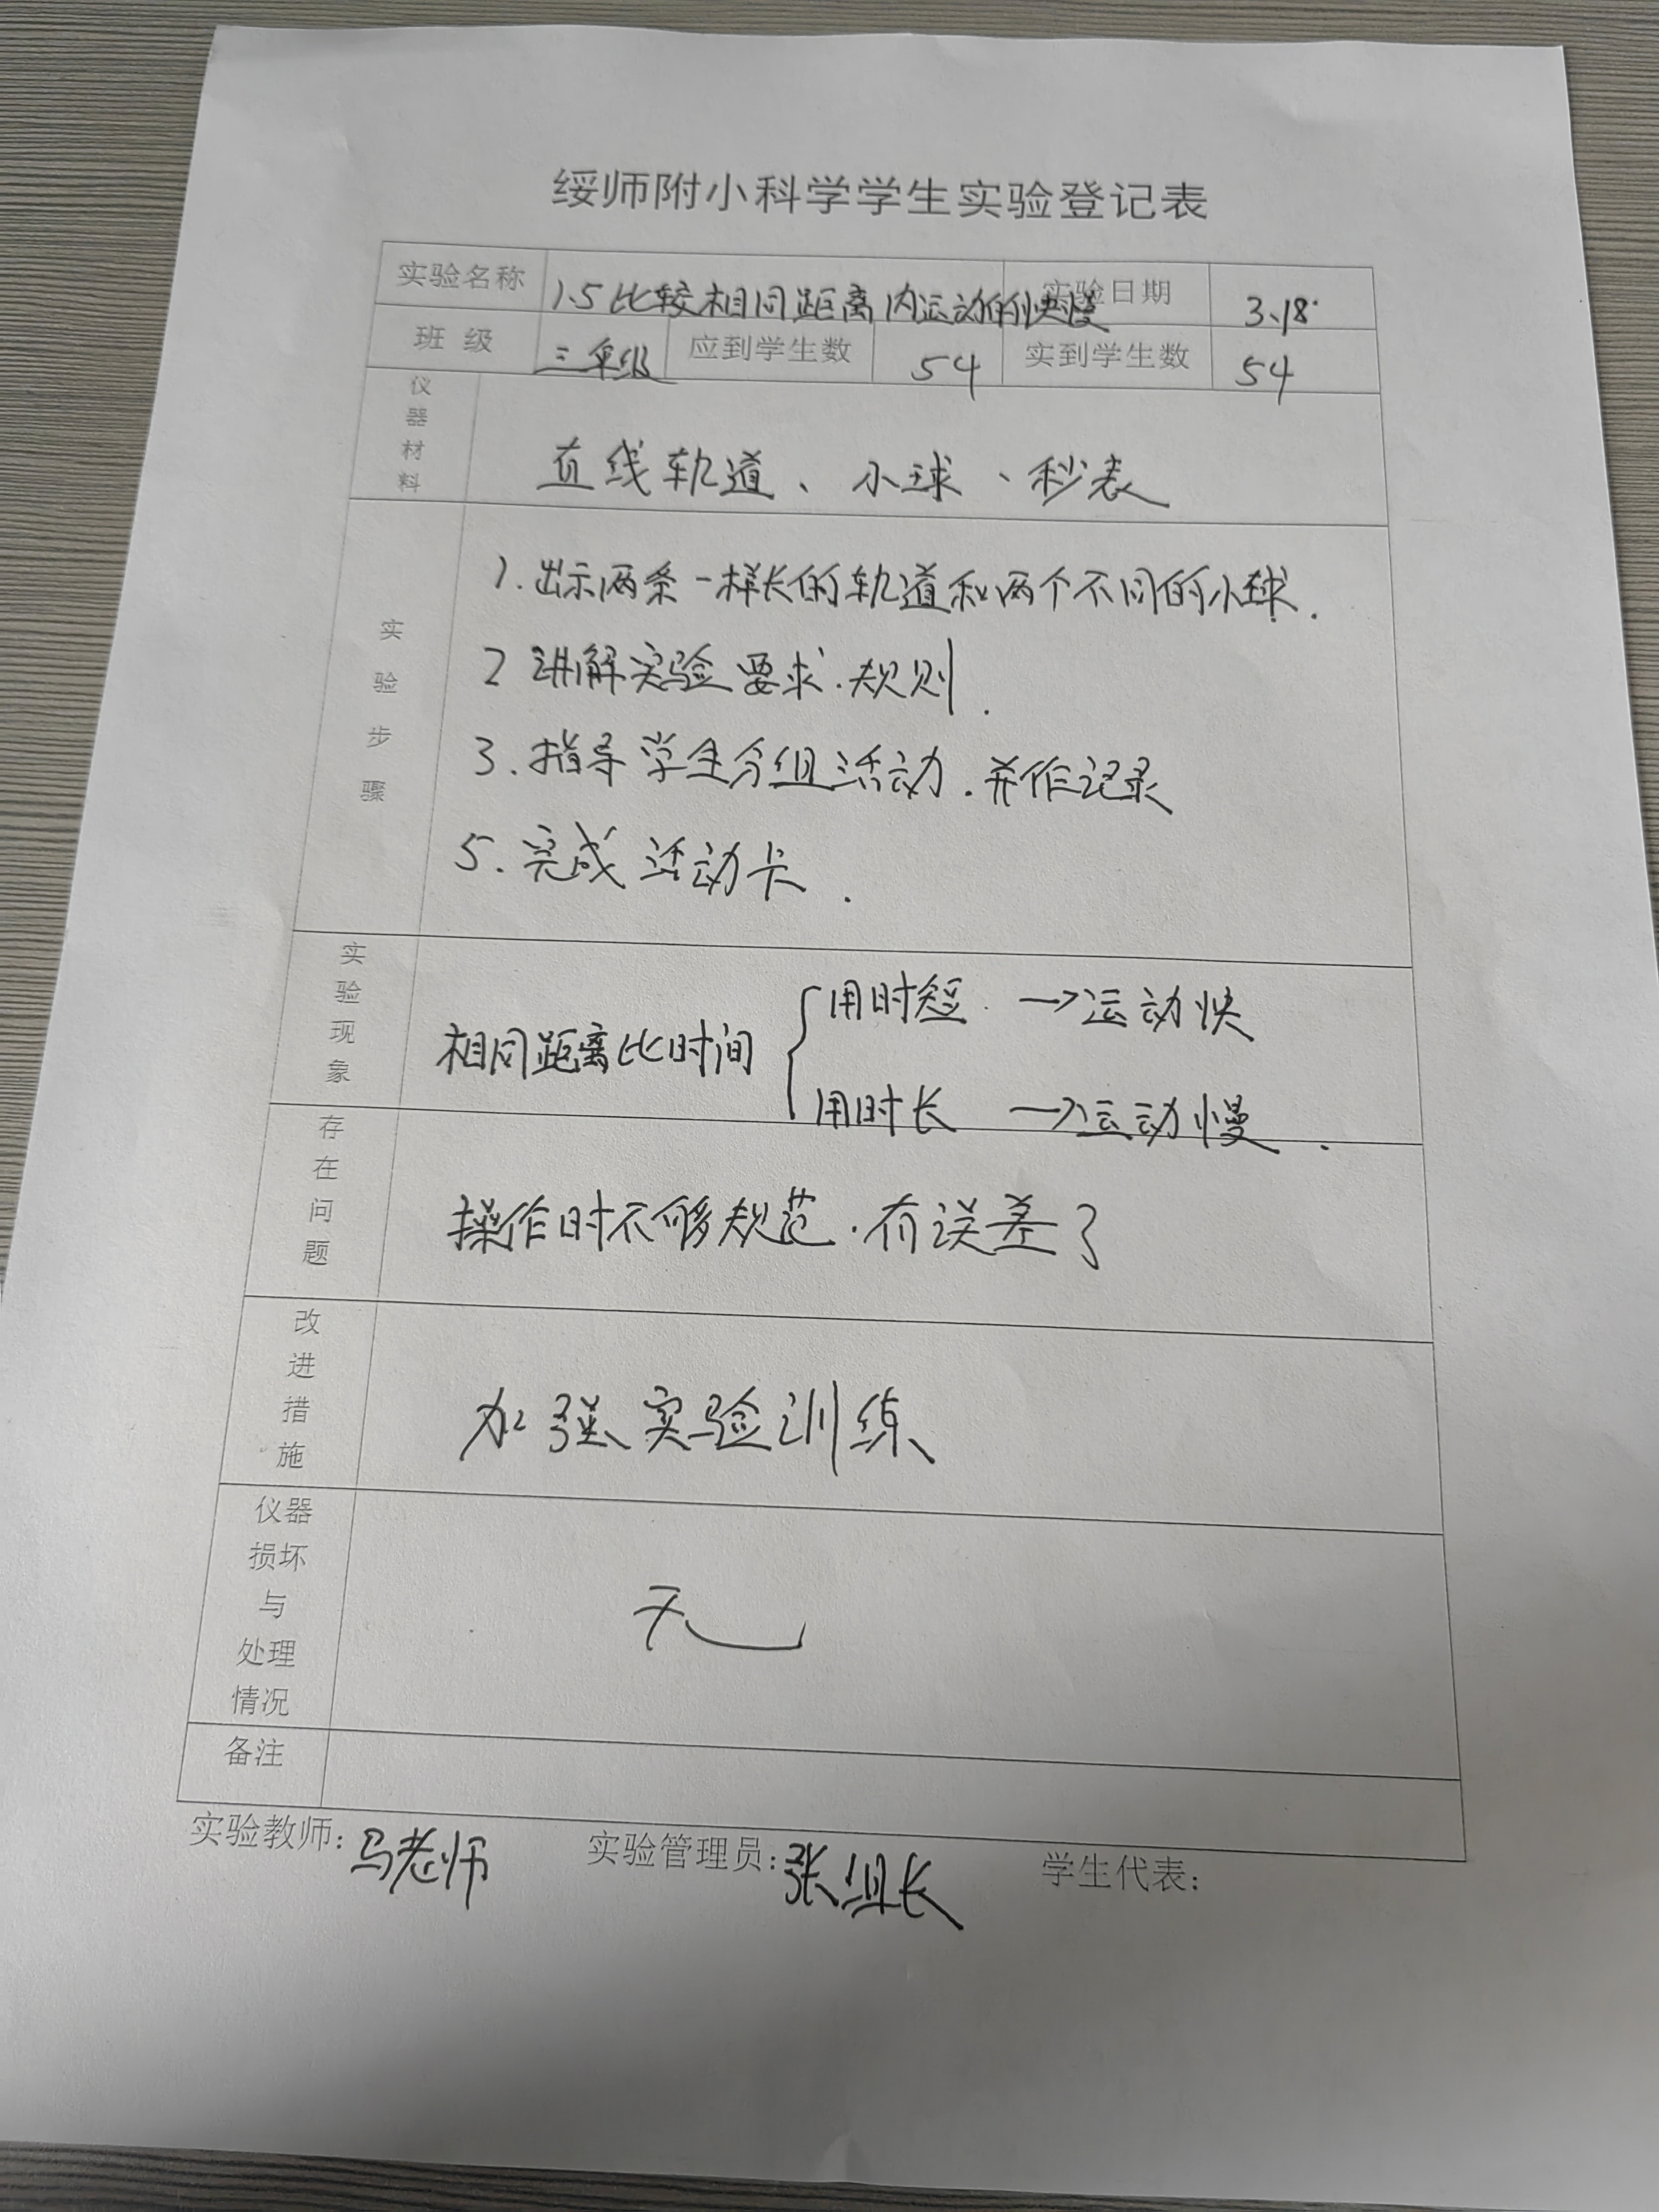 绥师附小科学学生实验登记表
实验名称 1.5比较相同距离内运动的快慢 实验日期 3.18.
班级 三年级 应到学生数 54 实到学生数 54
仪器材料 直线轨道、小球、秒表
实验步骤
1.出示两条一样长的轨道和两个不同的小球.
2 讲解实验要求.规则.
3.指导学生分组活动.并作记录
5.完成活动卡.
实验现象 相同距离比时间
用时短. →运动快
用时长 →运动慢.
存在问题 操作时不够规范.有误差了
改进措施 加强实验训练
仪器损坏与处理情况 无
备注
实验教师:马老师 实验管理员:张组长 学生代表: